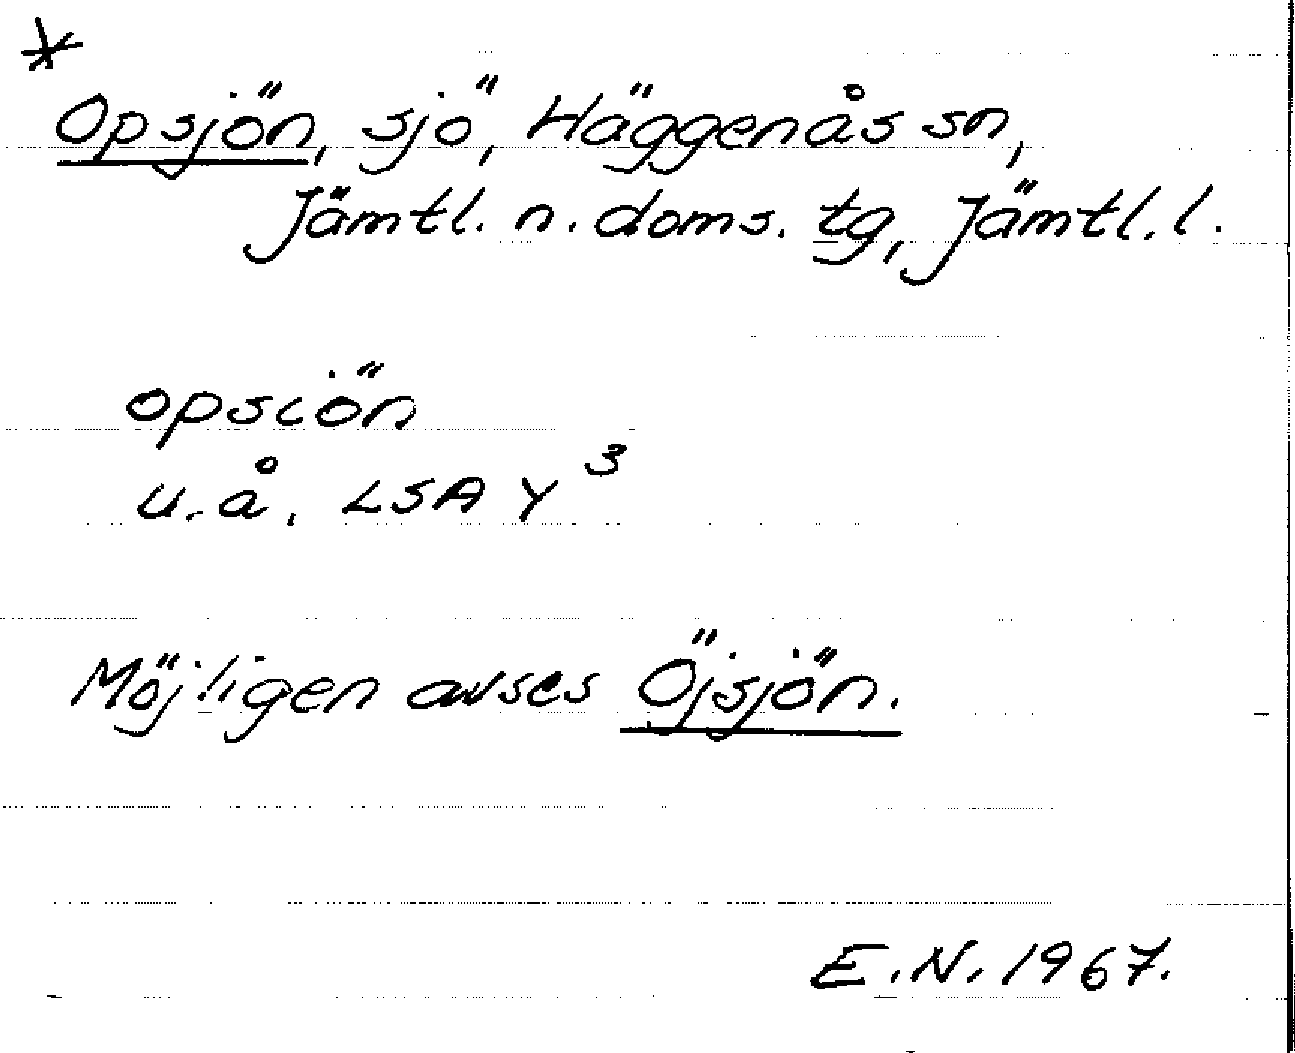 *
Opsjön, sjö, Häggenås sn,
Jämtl. n. doms. tg, Jämtl. l.
opsiön
u.å. LSA Y³
Möjligen avses Öjsjön.
E.N. 1967.